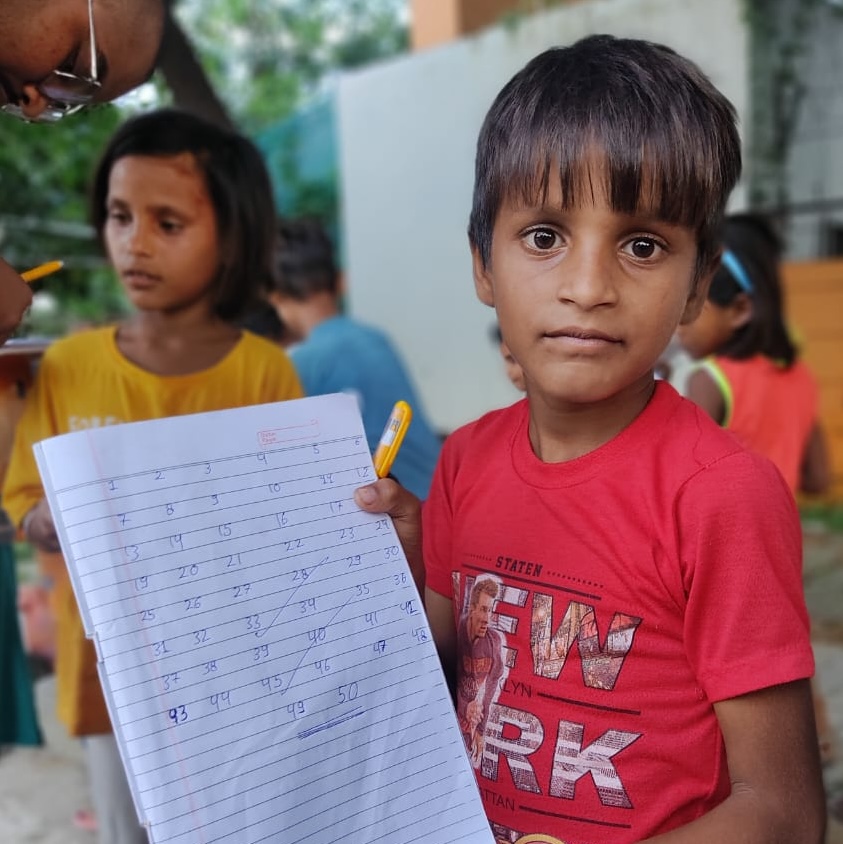 1 2 3 4 5 6
7 8 9 10 11 12
13 14 15 16 17
19 20 21 22 23 24
25 26 27 28 29 30
31 32 33 34 35 36
37 38 39 40 41 42
43 44 45 46 47 48
49 50
STATEN
EW
LYN
RK
TTAN